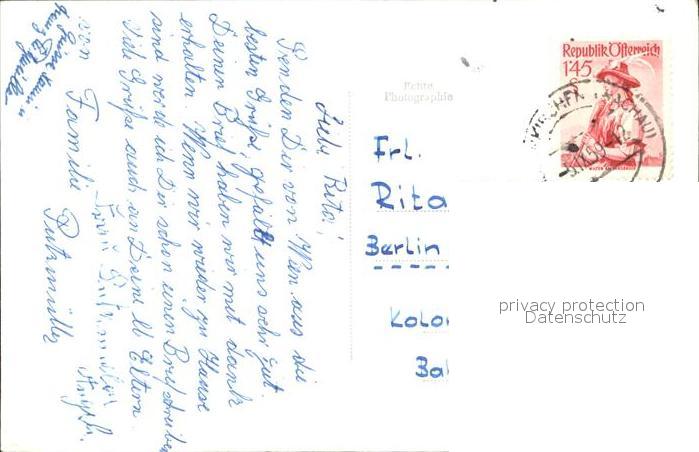 Liebe Rita!
Senden Dir von Wien aus die
besten Grüße, gefällt uns sehr gut.
Deinen Brief haben wir mit dank
erhalten. Wenn wir wieder zu Hause
sind werde ich Dir schon einen Brief schreiben
Viele Grüße auch an Deine lb Eltern.
von Familie
Echte
Photographie
Republik Österreich
1'45
S
KIRCHEN WACHAU
Frl.
Rita
Berlin
Kolo
Ba
privacy protection
Datenschutz